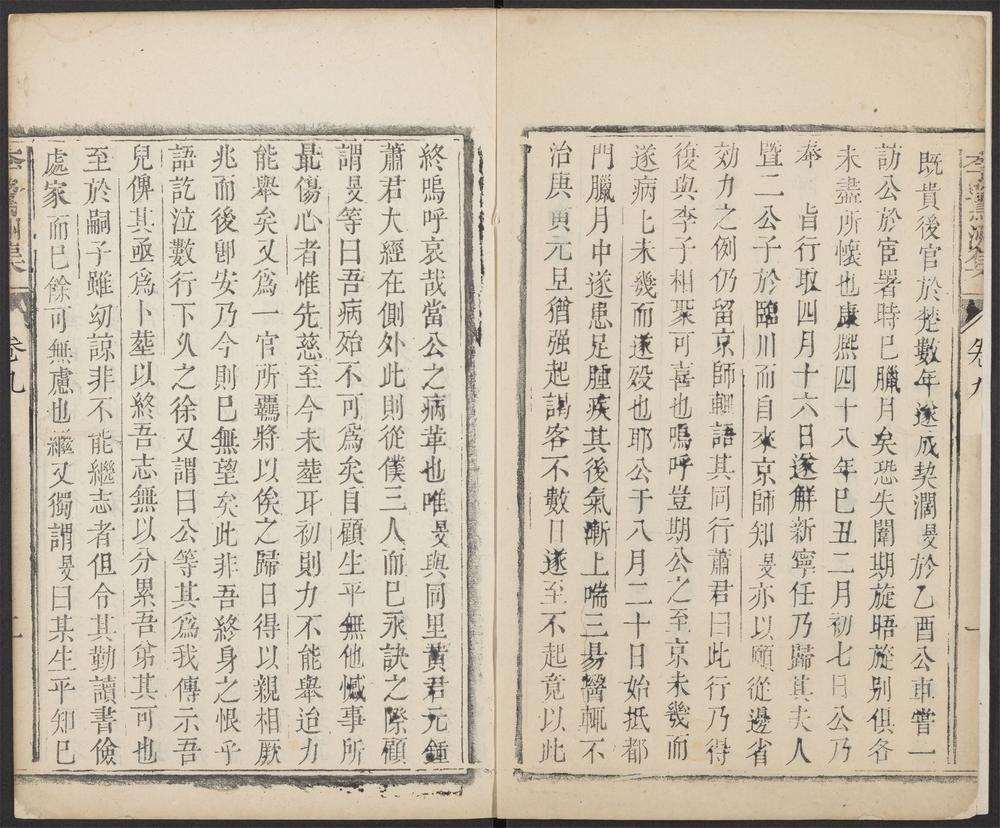 既貴後官於楚數年遂成契濶旻於乙酉公車嘗一
訪公於宦署時巳臘月矣恐失闈期旋晤旋别俱各
未盡所懷也康熙四十八年巳丑二月初七日公乃
奉 旨行取四月十六日遂解新寧任乃歸其夫人
暨二公子於臨川而自來京師知旻亦以願從邊省
効力之例仍留京師輒語其同行蕭君曰此行乃得
復與李子相聚可喜也嗚呼豈期公之至京未幾而
遂病七未幾而遂歿也耶公于八月二十日始抵都
門臘月中遂患足腫疾其後氣漸上喘三易醫輒不
治庚寅元旦猶强起謁客不數日遂至不起竟以此
卷九
一
終嗚呼哀哉當公之病革也唯旻與同里黄君元鍾
蕭君大經在側外此則從僕三人而巳永訣之際顧
謂旻等曰吾病殆不可爲矣自顧生平無他憾事所
最傷心者惟先慈至今未塟耳初則力不能舉迨力
能舉矣又爲一官所羈將以俟之歸日得以親相厥
兆而後卽安乃今則巳無望矣此非吾終身之恨乎
語訖泣數行下久之徐又謂曰公等其爲我傳示吾
兒俾其亟爲卜塟以終吾志無以分累吾弟其可也
至於嗣子雖幼諒非不能繼志者但令其勤讀書儉
處家而巳餘可無慮也繼又獨謂旻曰某生平知巳
卷九
二